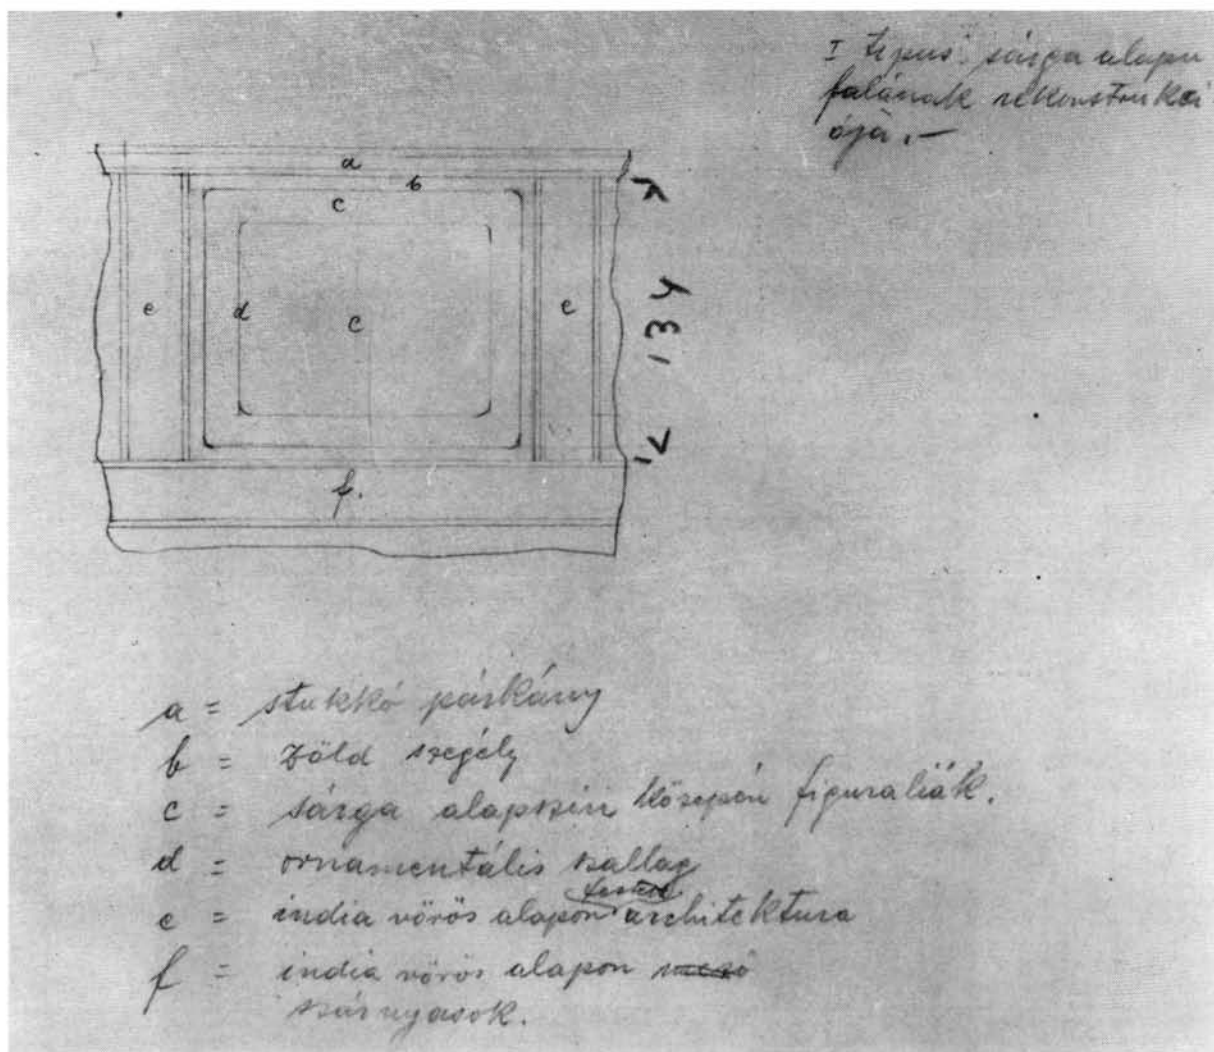 I tipus sárga alapu
falának rekonstrukci
ója.—
a
b
c
e
d
c
e
134
f.
a = stukkó párkány
b = zöld szegély
c = sárga alapszin közepén figuraliák.
d = ornamentális szallag
festett
e = india vörös alapon architektura
f = india vörös alapon
szárnyasok.